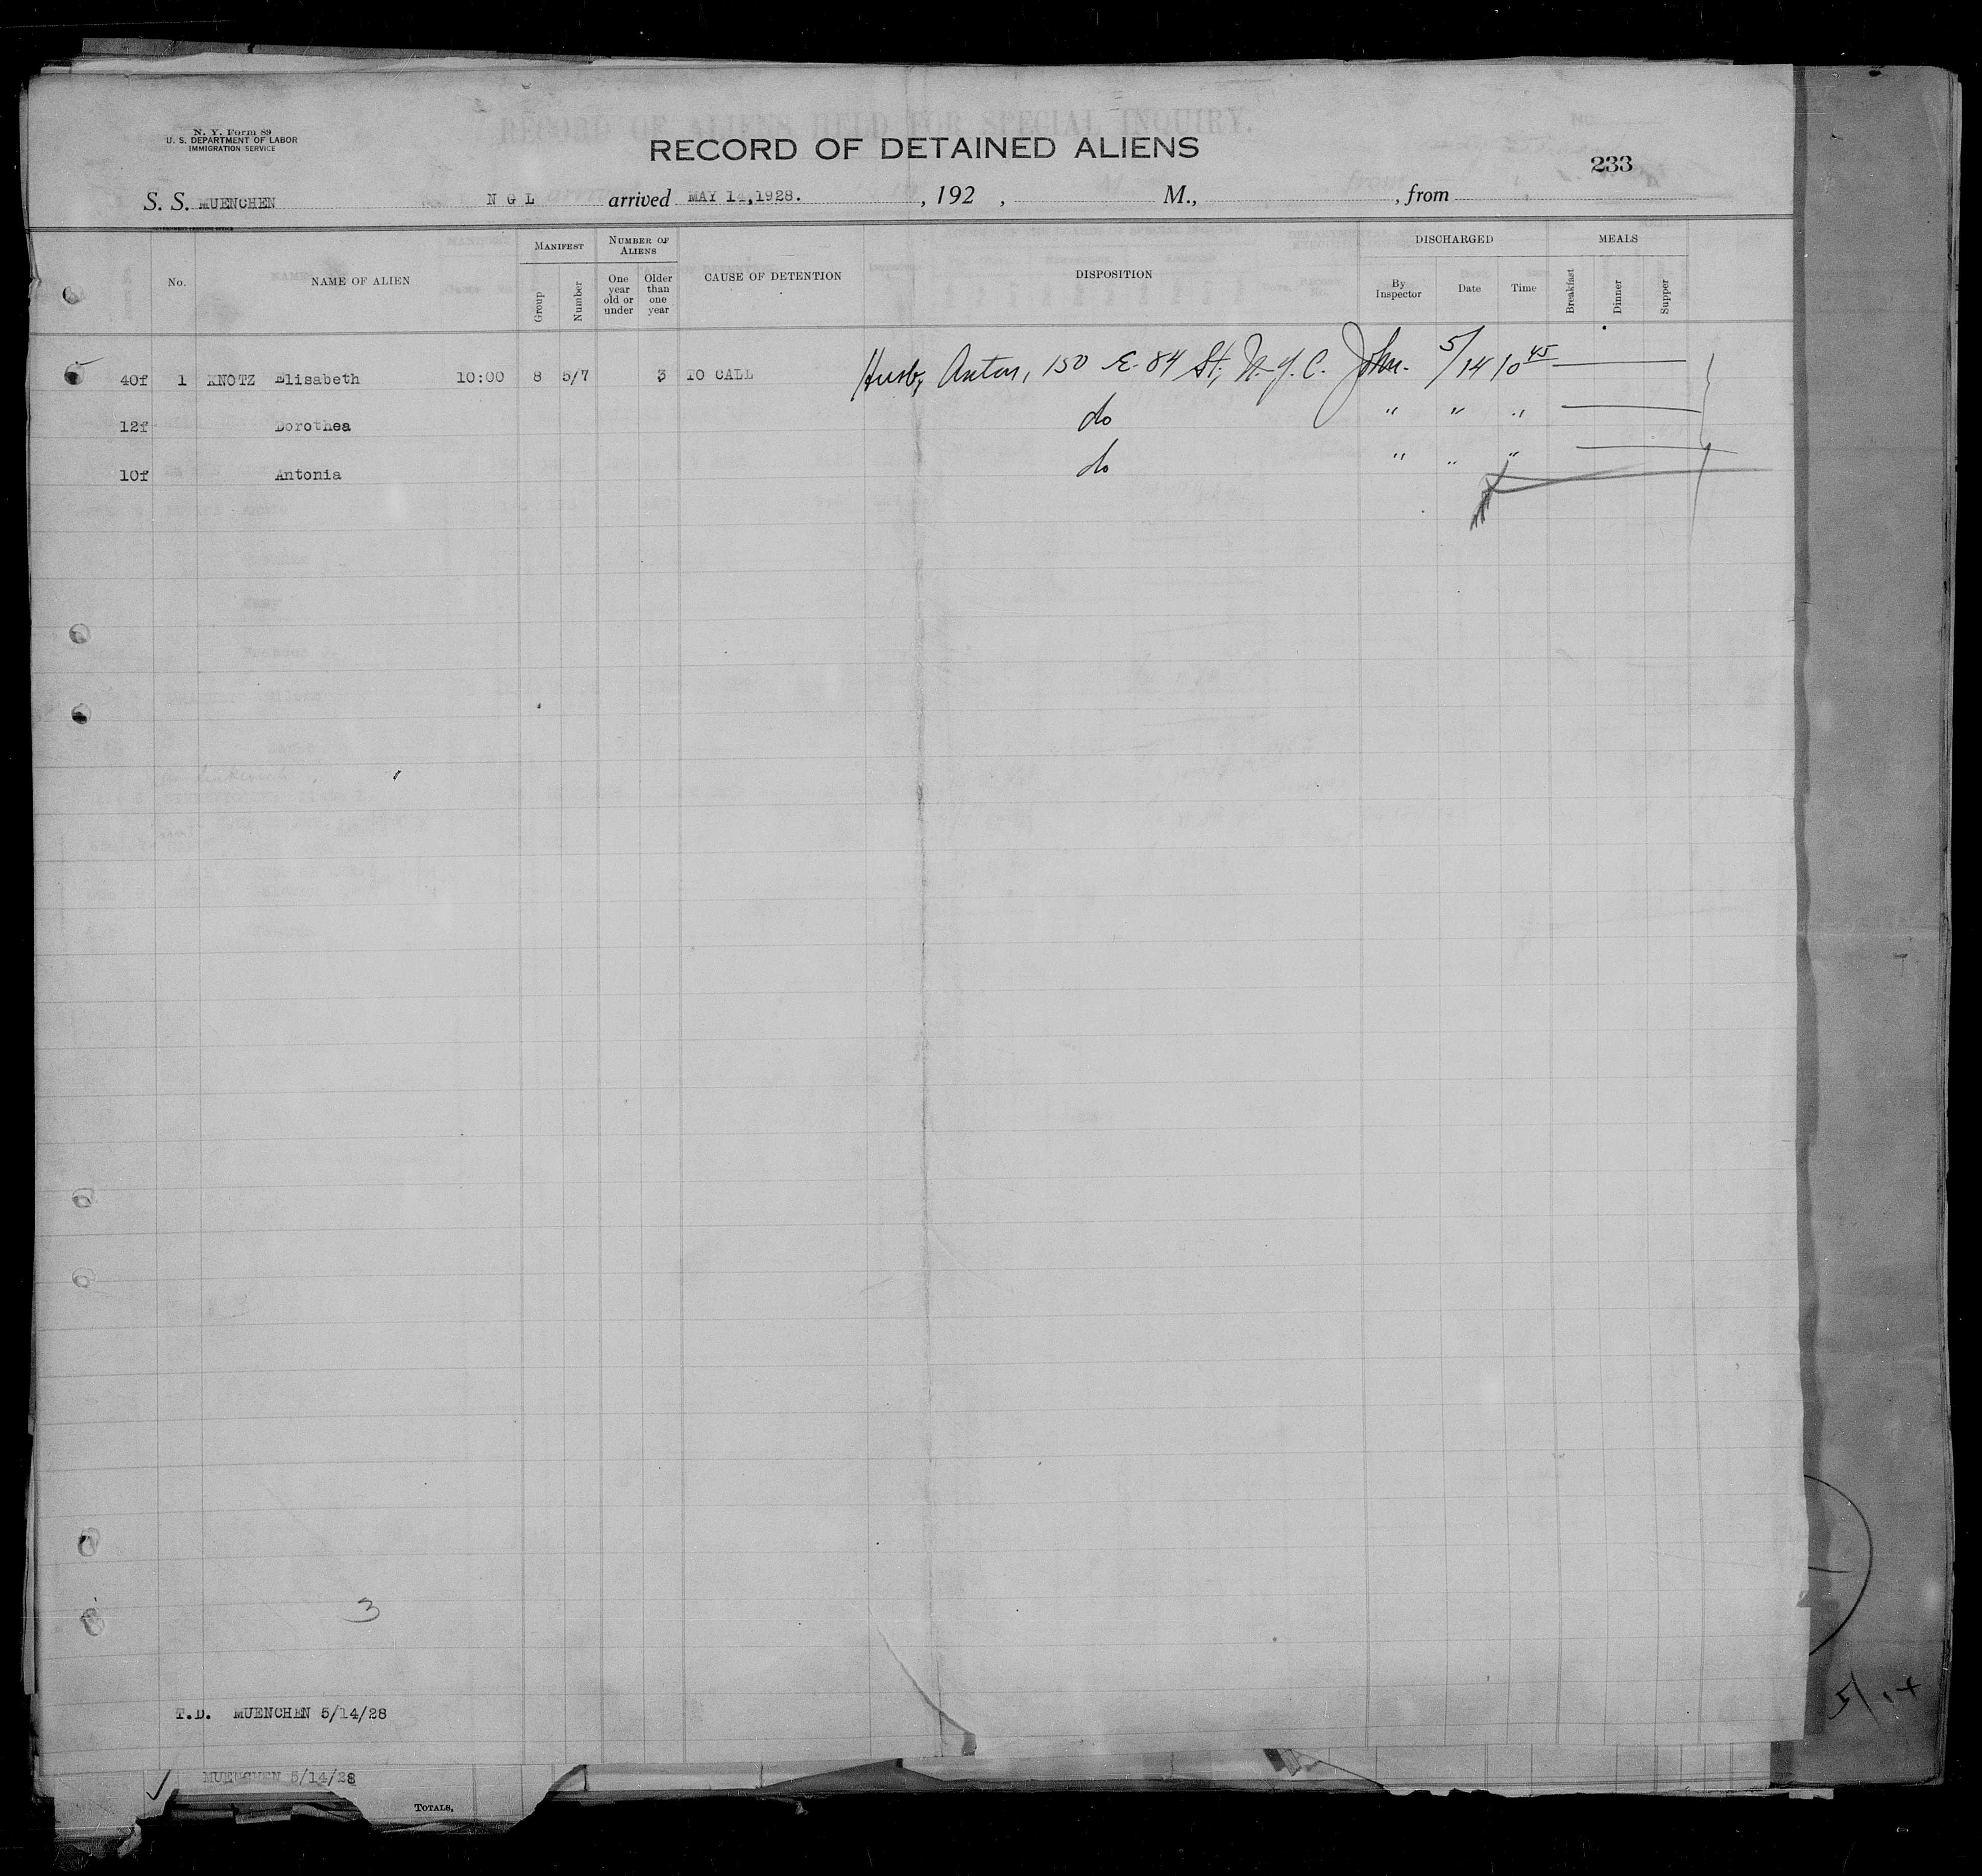 N. Y. Form 89
U. S. DEPARTMENT OF LABOR
IMMIGRATION SERVICE
RECORD OF ALIENS HELD FOR SPECIAL INQUIRY.
RECORD OF DETAINED ALIENS
233
S. S. MUENCHEN N G L arrived MAY 14,1928. , 192 , M., , from
No. NAME OF ALIEN MANIFEST Group Number NUMBER OF ALIENS One year old or under Older than one year CAUSE OF DETENTION DISPOSITION DISCHARGED By Inspector Date Time MEALS Breakfast Dinner Supper
40f 1 KNOTZ Elisabeth 10:00 8 5/7 3 TO CALL Husb, Anton, 150 E. 84 St, N.Y.C. John. 5/14 10 45
12f Dorothea do " " "
10f Antonia do " " "
3
T.D. MUENCHEN 5/14/28
MUENCHEN 5/14/28
TOTALS,